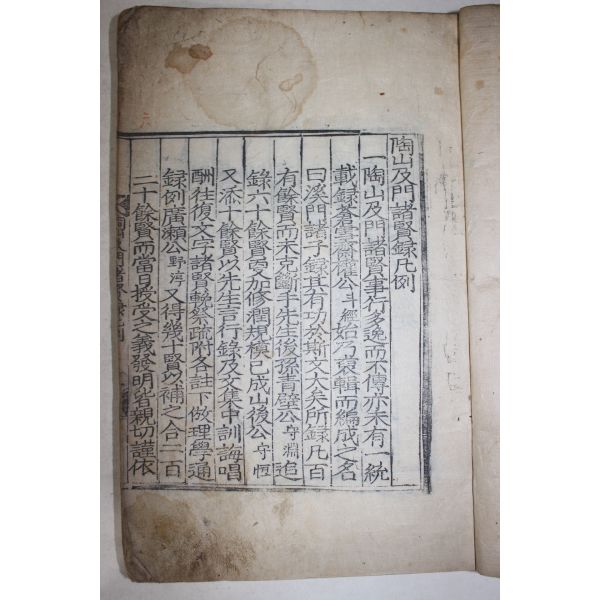 陶山及門諸賢錄凡例
一陶山及門諸賢事行多逸而不傳亦未有一統
載錄蒼雪齋權公斗經始乃裒輯而編成之名
曰溪門諸子錄其有功於斯文大矣所錄凡百
有餘賢而未克斷手先生後孫靑壁公守淵追
錄六十餘賢多加修潤規模已成山後公守恒
又添十餘賢以先生言行錄及文集中訓誨唱
酬往復文字諸賢輓祭疏附各註下倣理學通
錄例廣瀨公野淳又得幾十賢以補之合二百
六十餘賢而當日授受之義發明皆親切謹依